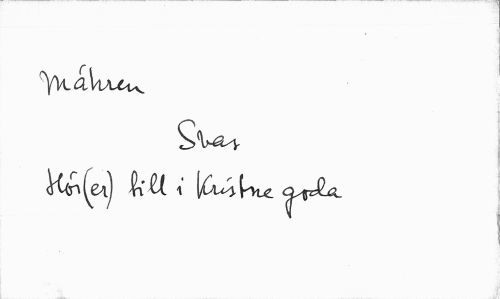 Mähren
Svar
Hör(er) till i Kristne goda